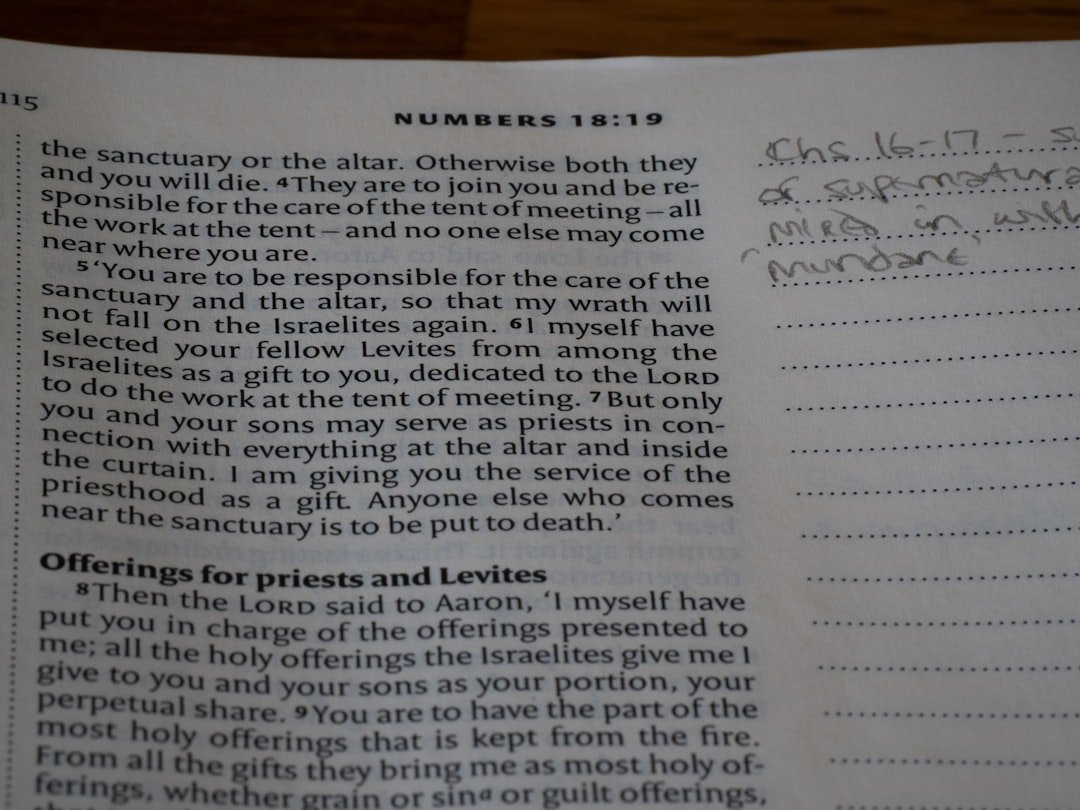 115
NUMBERS 18:19
the sanctuary or the altar. Otherwise both they
and you will die. 4They are to join you and be re-
sponsible for the care of the tent of meeting – all
the work at the tent – and no one else may come
near where you are.
5‘You are to be responsible for the care of the
sanctuary and the altar, so that my wrath will
not fall on the Israelites again. 6I myself have
selected your fellow Levites from among the
Israelites as a gift to you, dedicated to the LORD
to do the work at the tent of meeting. 7But only
you and your sons may serve as priests in con-
nection with everything at the altar and inside
the curtain. I am giving you the service of the
priesthood as a gift. Anyone else who comes
near the sanctuary is to be put to death.’
Offerings for priests and Levites
8Then the LORD said to Aaron, ‘I myself have
put you in charge of the offerings presented to
me; all the holy offerings the Israelites give me I
give to you and your sons as your portion, your
perpetual share. 9You are to have the part of the
most holy offerings that is kept from the fire.
From all the gifts they bring me as most holy of-
ferings, whether grain or sina or guilt offerings,
Chs 16-17 -
of
mixed in with
'mundane'